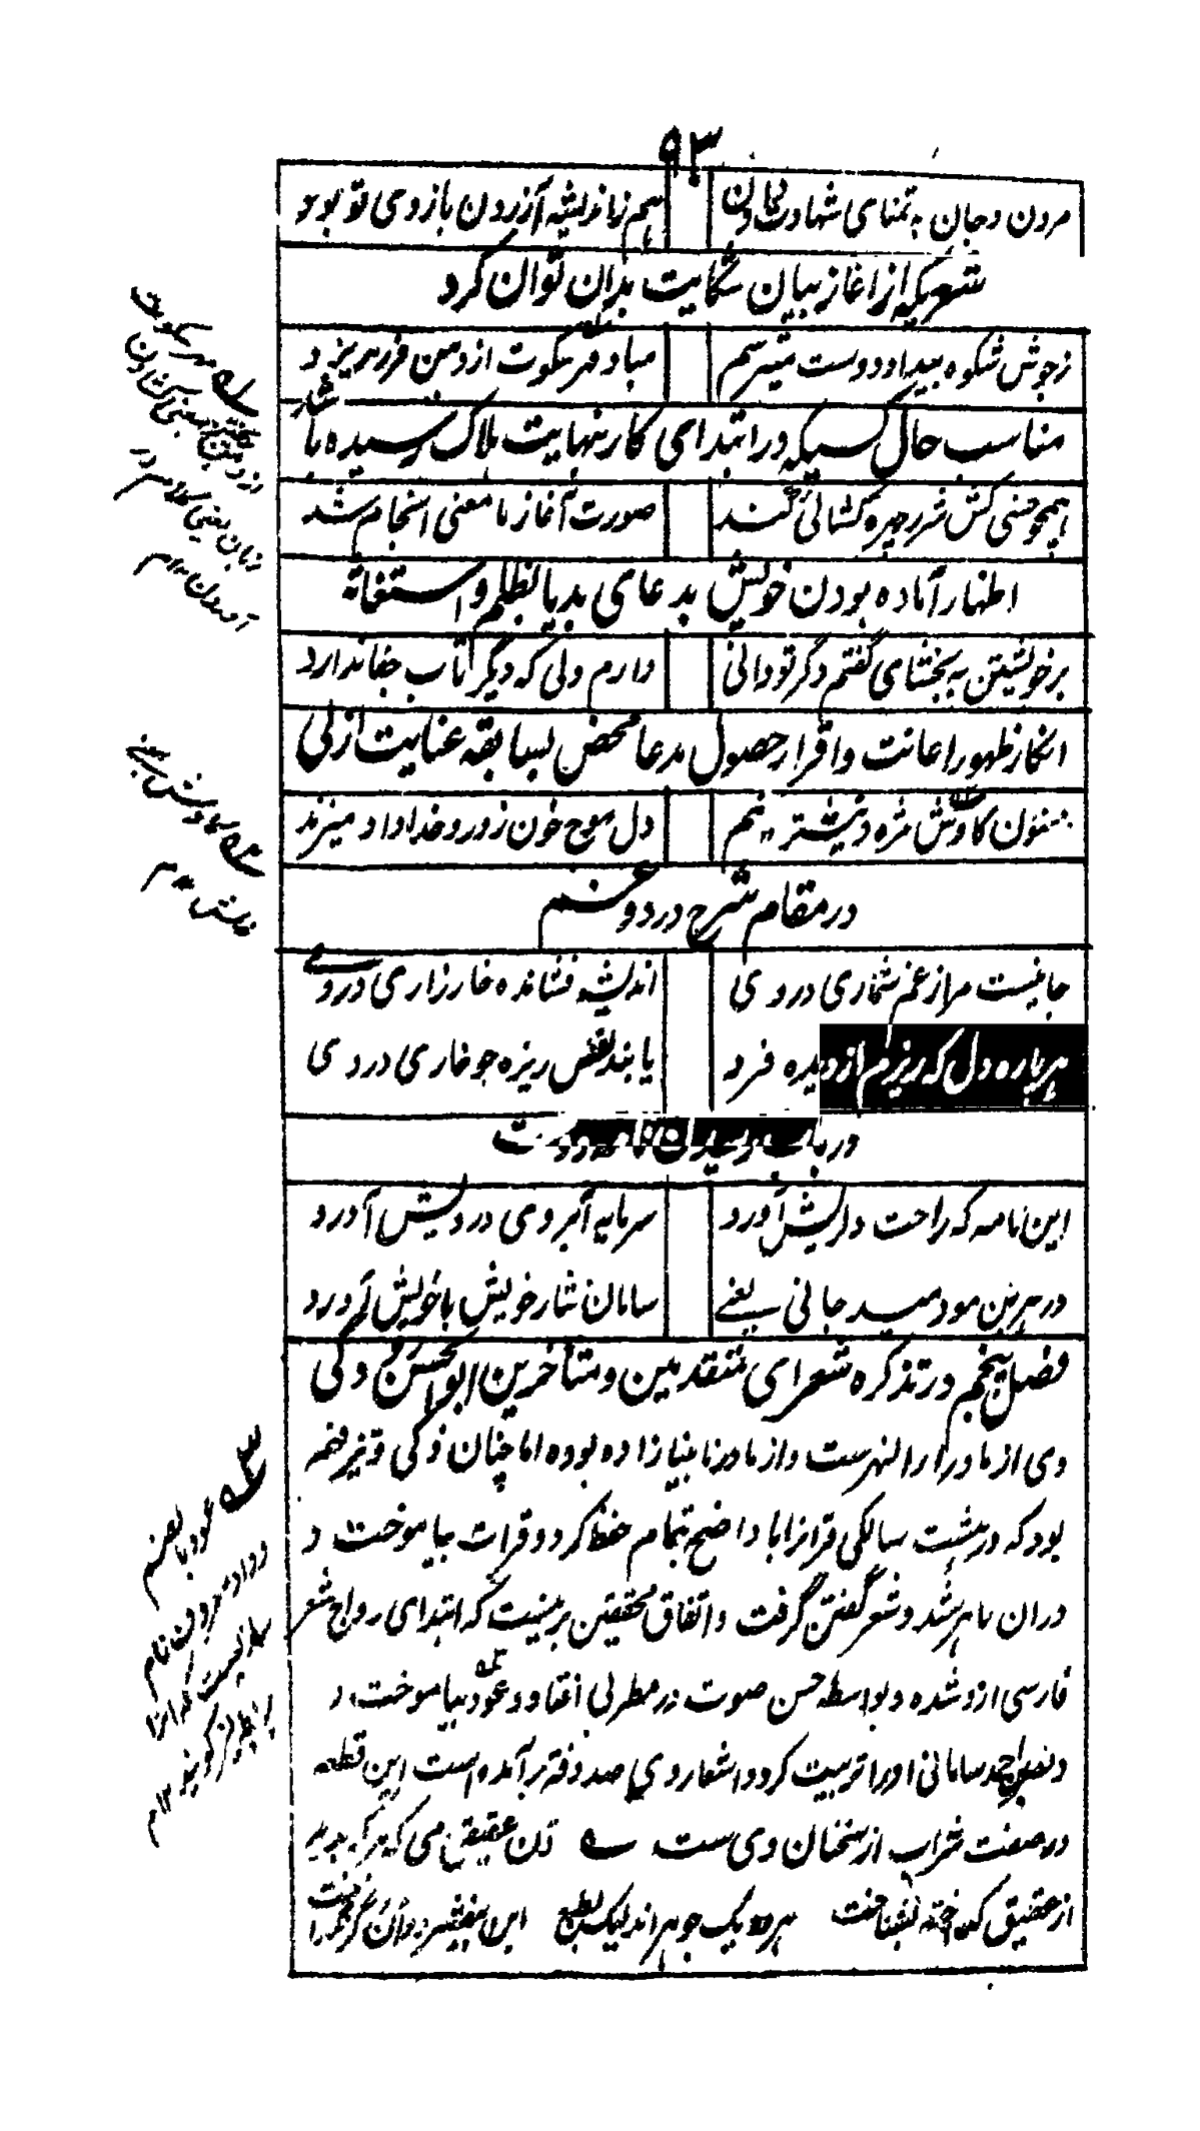 ۹۳
مردن و جان به تمنای شهادت دادن هم ز اندیشه آزردن بازوی تو بود
شعریکه از آغاز بیان شکایت بدان توان کرد
ز جوش شکوه بیداد دوست میترسم مباد مهر سکوت از دهن فرو ریزد
مناسب حال کسیکه در ابتدای کار بنهایت هلاک رسیده باشد
همچو حسنی کش شرر چهره کشائی کند صورت آغاز ما معنی انجام شد
اظهار آماده بودن خویش بدعای بد یا تظلم و استغاثه
بر خویشتن به بخشای گفتم دگر تو دانی دارم دلی که دیگر تاب جفا ندارد
انکار ظهور اعانت و اقرار حصول مدعا محض بسابقه عنایت ازلی
ممنون کاوش مژه و نیشتر نیم دل موج خون ز درد خداداد میزند
در مقام شرح درد و غم
جائیست مرا ز غم شماری در وی اندیشه فشانده خارزاری در وی
هر پاره دل که ریزم از دیده فرد یابند نفس ریزه چو خاری در وی
در باب رسیدن نامه دوست
این نامه که راحت دل ریش آورد سرمایه آبروی درویش آورد
در هر بن مو دمید جانی یعنی سامان نثار خویش با خویش آورد
فصل پنجم در تذکره شعرای متقدمین و متأخرین ابوالحسن رودکی
وی از ماوراء النهرست و از مادر نابینا زاده بوده اما چنان ذکی و تیز فهم
بود که در هشت سالگی قرانرا بتمام حفظ کرد و قرات بیاموخت و
دران ماهر شد و شعر گفتن گرفت و اتفاق محققین برینیت که ابتدای رواج شعر
فارسی ازو شده و بواسطه حسن صوت در مطربی افتاد و عود بیاموخت و
و نصر بن احمد سامانی او را تربیت کرد و اشعار وی صد دفتر برآمده است این قطعه
در صفت شراب از سخنان وی ست آن عقیقین می که هر که بدید
از عقیق گداخته نشناخت هر دو یک جوهر اند لیک بطبع این بیفشرد و آن دگر بگداخت